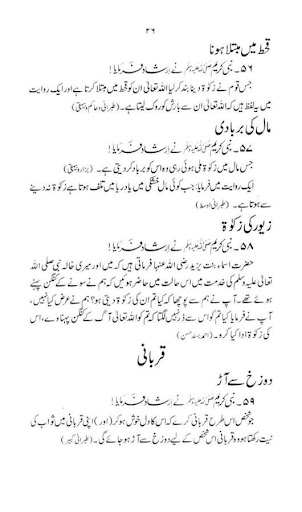 ۳۶
قحط میں مبتلا ہونا
۵۶۔ نبی کریم ﷺ نے ارشاد فرمایا!
جس قوم نے زکوٰۃ دینا بند کر لیا اللہ تعالیٰ ان کو قحط میں مبتلا کرتا ہے اور ایک روایت
میں یہ لفظ ہیں کہ اللہ تعالیٰ ان سے بارش کو روک لیتا ہے۔ (طبرانی وحاکم وبیہقی)
مال کی بربادی
۵۷۔ نبی کریم ﷺ نے ارشاد فرمایا!
جس مال میں زکوٰۃ ملی ہوئی رہی وہ اس کو برباد کر دیتی ہے۔ (بزار وبیہقی)
ایک روایت میں فرمایا: جب کوئی مال خشکی میں یا دریا میں تلف ہوتا ہے زکوٰۃ نہ دینے
سے ہوتا ہے۔ (طبرانی اوسط)
زیور کی زکوٰۃ
۵۸۔ نبی کریم ﷺ نے ارشاد فرمایا!
حضرت اسماء بنت یزید رضی اللہ عنہا فرماتی ہیں کہ میں اور میری خالہ نبی صلی اللہ
تعالیٰ علیہ وسلم کی خدمت میں اس حالت میں حاضر ہوئیں کہ ہم نے سونے کے کنگن پہنے
ہوئے تھے۔ آپ نے ہم سے پوچھا کہ کیا تم ان کی زکوٰۃ دیتی ہو؟ ہم نے عرض کیا نہیں،
آپ نے فرمایا کیا تم کو اس سے ڈر نہیں لگتا کہ تم کو اللہ تعالیٰ آگ کے کنگن پہنا دے، اس
کی زکوٰۃ ادا کیا کرو۔ (احمد بسند حسن)
قربانی
دوزخ سے آڑ
۵۹۔ نبی کریم ﷺ نے ارشاد فرمایا!
جو شخص اس طرح قربانی کرے کہ اس کا دل خوش ہو کر (اور) اپنی قربانی میں ثواب کی
نیت رکھتا ہو وہ قربانی اس شخص کے لیے دوزخ سے آڑ ہو جائے گی۔ (طبرانی کبیر)